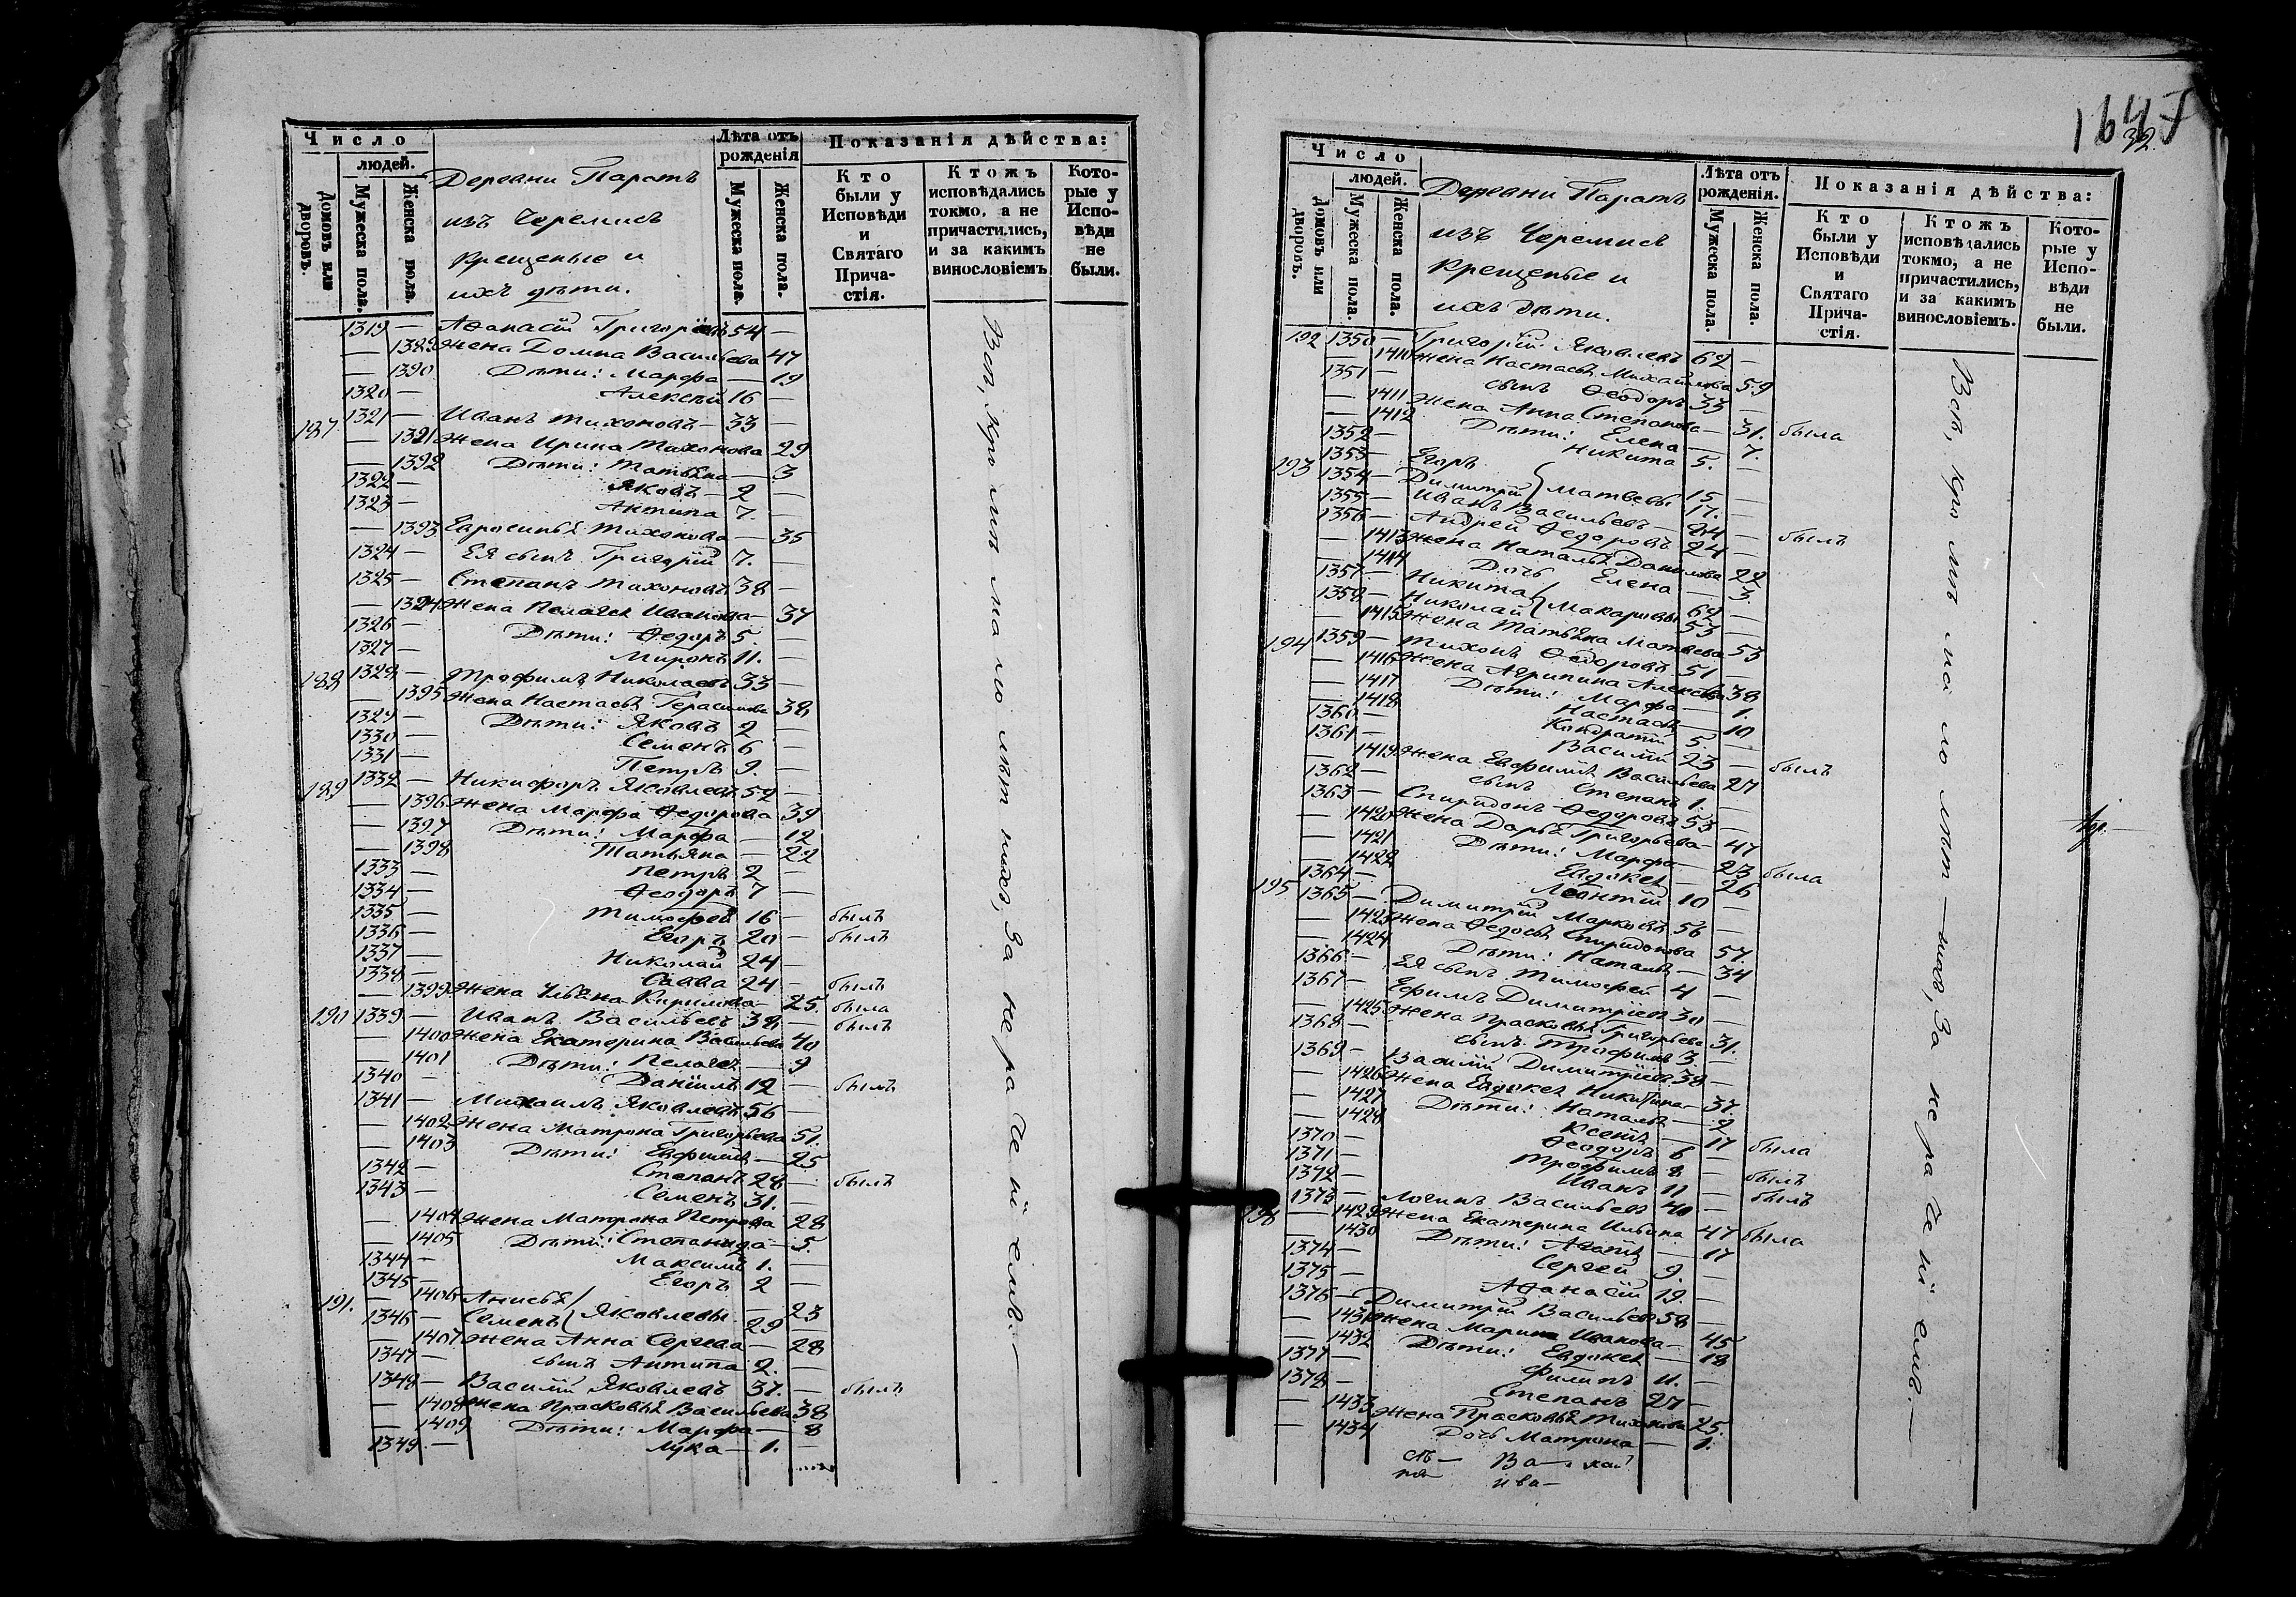 Число
людей.
Домовъ или дворовъ.
Мужеска пола.
Женска пола.
Деревни Паратъ
изъ Черемисъ
крещеные и
ихъ дѣти.
Лѣта отъ рожденія
Мужеска пола.
Женска пола.
Показанія дѣйства:
Кто были у Исповѣди и Святаго Причастія.
Ктожъ исповѣдались токмо, а не причастились, и за какимъ винословіемъ
Которые у Исповѣди не были.
1319 — Аѳанасій Григорьевъ 54 —
— 1389 Жена Домна Васильева 47
— 1390 Дѣти: Марѳа — 19
1320 — Алексѣй 16 —
187 1321 — Иванъ Тихоновъ — 33 —
— 1391 Жена Ирина Тихонова 29
— 1392 Дѣти: Татьяна — 3
1322 — Яковъ — 2 —
1323 — Антипа 7. —
— 1393 Евросинья Тихонова — 35
1324 — Ея сынъ Григорій 7. —
1325 — Степанъ Тихоновъ 38 —
— 1394 Жена Пелагея Иванова — 37
1326 — Дѣти: Ѳедоръ 5. —
1327 — Миронъ 11. —
188 1328 — Трофимъ Николаевъ 33 —
— 1395 Жена Настасья Герасимова 38
1329 — Дѣти: Яковъ 2 —
1330 — Семенъ 6 —
1331 — Петръ 9. —
189 1332 — Никифоръ Яковлевъ 52 —
— 1396 Жена Марѳа Ѳедорова 39
— 1397 Дѣти: Марѳа — 12
— 1398 Татьяна — 22
1333 — Петръ 2 —
1334 — Ѳеодоръ 7 —
1335 — Тимофей 16 — былъ
1336 — Егоръ 20 — былъ
1337 — Николай 24 —
1338 — Савва 24 — былъ
— 1399 Жена Ульяна Кирилова — 25. была
190 1339 — Иванъ Васильевъ 38 — былъ
— 1400 Жена Екатерина Васильева 40
— 1401 Дѣти: Пелагея — 9
1340 — Даніилъ 12 — былъ
1341 — Михаилъ Яковлевъ 56 —
— 1402 Жена Матрона Григорьева 51.
— 1403 Дѣти: Евфимья — 25
1342 — Степанъ 28 — былъ
1343 — Семенъ 31. —
— 1404 Жена Матрона Петрова 28
— 1405 Дѣти: Степанида — 5.
1344 — Максимъ 1. —
1345 — Егоръ 2 —
191. — 1406 Анисья — 23
1346 — Семенъ } Яковлевы 29
— 1407 Жена Анна Сергеева — 28
1347 — сынъ Антипа 2.
1348 — Василій Яковлевъ 37. — былъ
— 1408 Жена Прасковья Васильева 38
— 1409 Дѣти: Марѳа — 8
1349. — Лука — 1. —
Всѣ, кромѣ малолѣтнихъ, за нераченіемъ. —
164
32
Число
людей.
Домовъ или дворовъ.
Мужеска пола.
Женска пола.
Деревни Паратъ
изъ Черемисъ
крещеные и
ихъ дѣти.
Лѣта отъ рожденія.
Мужеска пола.
Женска пола.
Показанія дѣйства:
Кто были у Исповѣди и Святаго Причастія.
Ктожъ исповѣдались токмо, а не причастились, и за какимъ винословіемъ.
Которые у Исповѣди не были.
192 1350 — Григорій Яковлевъ 62 —
— 1410 Жена Настасья Михайлова 59
1351 — сынъ Ѳеодоръ 33 —
— 1411 Жена Анна Степанова — 31. была
— 1412 Дѣти: Елена — 7.
1352 — Никита 5. —
193 1353 — Егоръ
1354 — Димитрій } Матвеевы 15 —
1355 — Иванъ Васильевъ — 17. —
1356 — Андрей Ѳедоровъ 24 — былъ
— 1413 Жена Наталья Данилова 22
— 1414 Дочь Елена — 3.
1357 — Никита
1358 — Николай } Макаровы 62 —
— 1415 Жена Татьяна Матвеева 53
194 1359 — Тихонъ Ѳедоровъ 51 —
— 1416 Жена Агрипина Алексѣева 38
— 1417 Дѣти: Марѳа — 1.
— 1418 Настасья — 10
1360 — Кондратій 5. —
1361 — Василій 23 — былъ
— 1419 Жена Евфимья Васильева 27
1362 — сынъ Степанъ 1. —
1363 — Спиридонъ Ѳедоровъ 53 —
— 1420 Жена Дарья Григорьева — 47
— 1421 Дѣти: Марѳа — 23 была
— 1422 Евдокея — 26
1364 — Леонтій 10 —
195 1365 — Димитрій Марковъ 56 —
— 1423 Жена Ѳедосья Спиридонова 57.
— 1424 Дѣти: Наталья — 34
1366 — Ея сынъ Тимофей 4 —
1367 — Ефимъ Димитріевъ 30 —
— 1425 Жена Прасковья Григорьева 31.
1368 — сынъ Трофимъ 3. —
1369 — Василій Димитріевъ 38 —
— 1426 Жена Евдокея Никитина — 37.
— 1427 Дѣти: Наталья — 2
— 1428 Ксенья — 17 была
1370 — Ѳеодоръ 6 —
1371 — Трофимъ 8 — былъ
1372 — Иванъ 11 — былъ
196 1373 — Логинъ Васильевъ 40 —
— 1429 Жена Екатерина Ильина 47 была
— 1430 Дѣти: Агафья — 17
1374 — Сергей 9. —
1375 — Аѳанасій 19. —
1376 — Димитрій Васильевъ 58 —
— 1431 Жена Марина Иванова — 45
— 1432 Дѣти: Евдокея — 18
1377 — Филипъ 11. —
1378 — Степанъ 27 —
— 1433 Жена Прасковья Тихонова 25.
— 1434 Дочь Матрона — 1.
Всѣ, кромѣ малолѣт — нихъ, за нераченіемъ. —